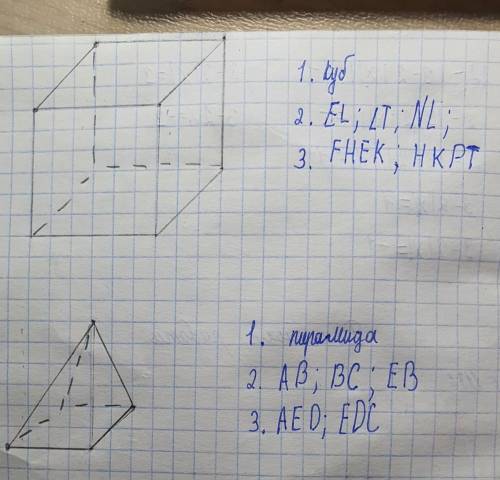 1. куб
2. EL; LT; NL;
3. FHEK; HKPT
1. пирамида
2. AB; BC; EB
3. AED; EDC